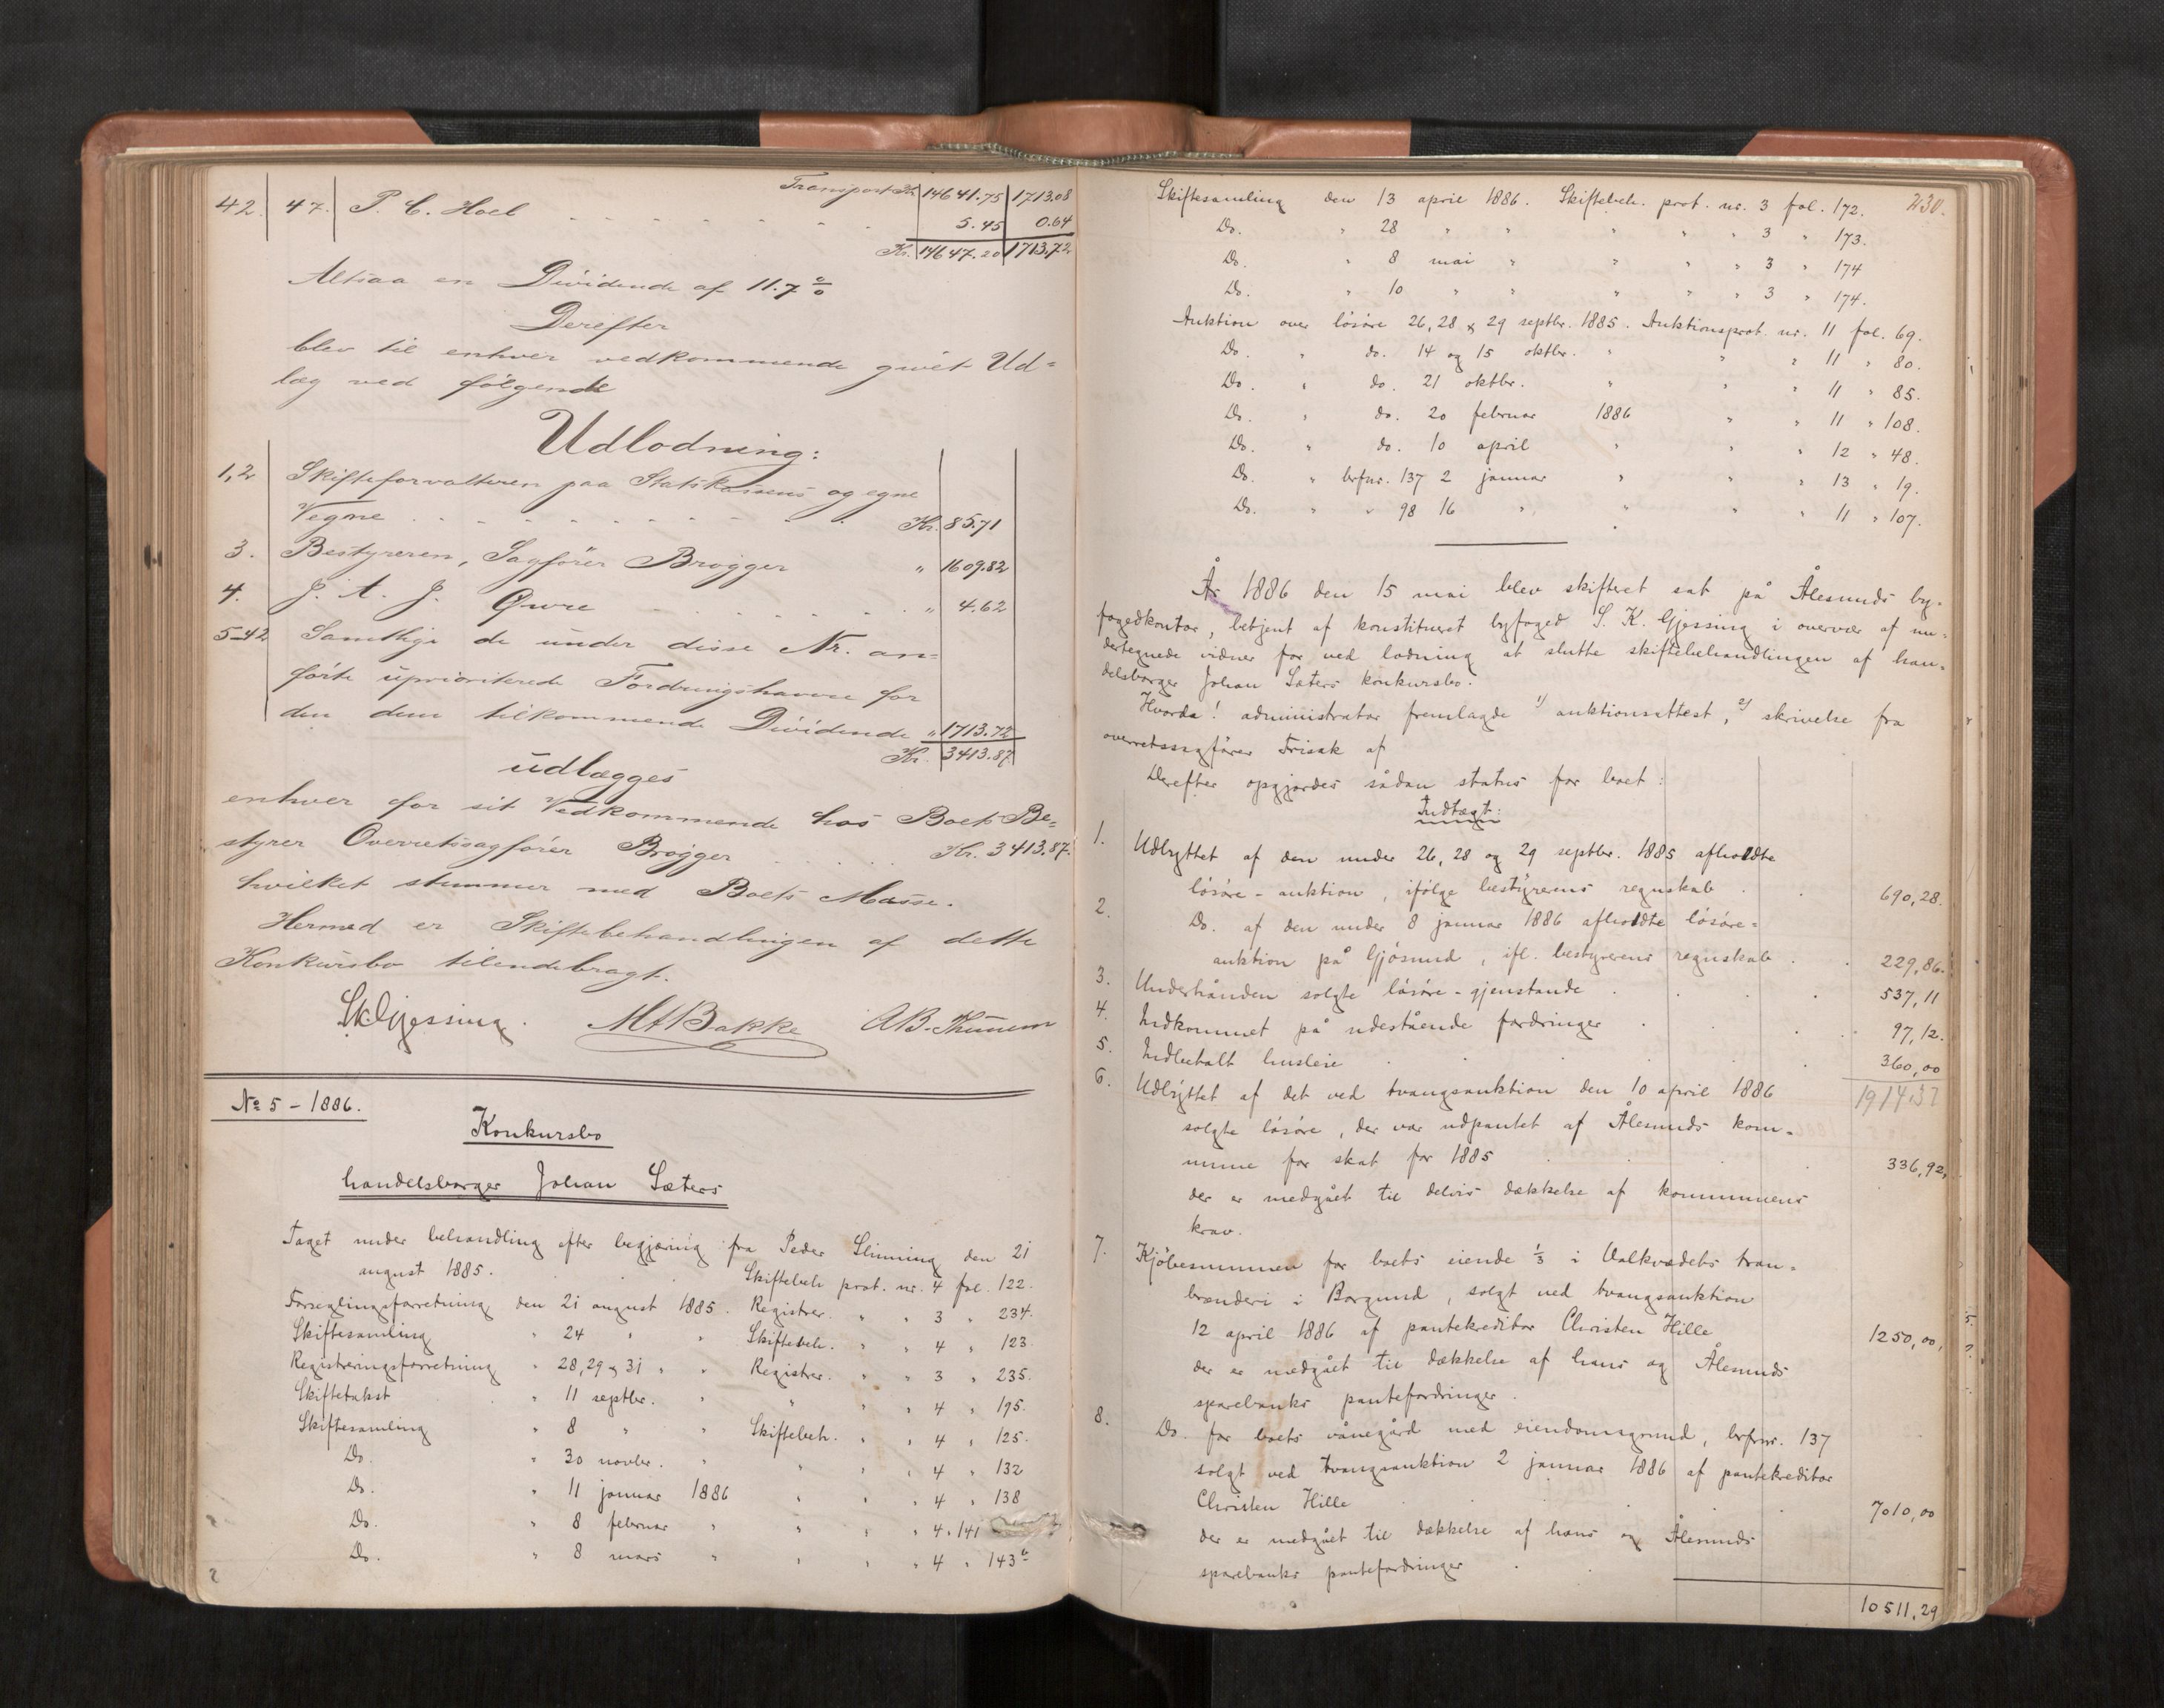 Transport Kr. 14641.75 1713.08
42. 47. P. C. Hoel . . . . . . 5.45 0.64
Kr. 14647.20 1713,72
Altsaa en Dividende af 11.7 %
Derefter
blev til enhver vedkommende givet Ud=
læg ved følgende
Udlodning:
1,2 Skifteforvalteren paa Statskassens og egne
Vegne . . . . . . . . Kr. 85.71
3. Bestyreren, Sagfører Brøgger " 1609.82
4. J. A. J. Qvre . . . . . " 4.62
5-42 Samtlige de under disse Nr. an=
førte uprioriterede Fordringshavere for
den dem tilkommende Dividende " 1713.72
Kr. 3413.87
udlægges
enhver for sit Vedkommende hos Boets Be=
styrer Overretssagfører Brøgger . . . . . Kr. 3413.87.
hvilket stemmer med Boets Masse.
Hermed er Skiftebehandlingen af dette
Konkursbo tilendebragt.
SKGjessing. MABakke AB.
No 5 - 1886.
Konkursbo
handelsborger Johan Sæters
Taget under behandling efter begjæring fra Peder Slinning den 21
august 1885. . . Skiftebeh prot. nr. 4 fol. 122.
Forseglingsforretning den 21 august 1885. Registrer. " " 3 " 234.
Skiftesamling " 24 " " Skiftebeh. " " 4 " 123
Registreringsforretning " 28, 29 & 31 " " Registrer. " " 3 " 235.
Skiftetakst " 11 septbr. " " " " 4 " 195.
Skiftesamling " 8 " " Skiftebeh. " " 4 " 125.
Do. " 30 novbr. " " " " 4 " 132
Do. " 11 januar 1886 " " " 4 " 138
Do. " 8 februar " " " " 4 " 141
Do. " 8 mars " " " " 4 " 143 b
230.
Skiftesamling den 13 april 1886. Skiftebeh. prot. nr. 3 fol. 172.
Do. " 28 " " " " " 3 " 173.
Do. " 8 mai " " " " 3 " 174
Do. " 10 " " " " " 3 " 174.
Auktion over løsøre 26, 28 & 29 septbr. 1885. Auktionsprot. nr. 11 fol. 69.
Do. " do. 14 og 15 oktbr. " " " 11 " 80.
Do. " do. 21 oktbr. " " " 11 " 85.
Do. " do. 20 februar 1886 " " 11 " 108.
Do. " do. 10 april " " " 12 " 48.
Do. " brfnr. 137 2 januar " " " 13 " 19.
Do. " " 98 16 " " " " 11 " 107.
År 1886 den 15 mai blev skifteret sat på Ålesunds by-
fogedkontor, betjent af konstitueret byfoged S. K. Gjessing i overvær af un-
dertegnede vidner for ved lodning at slutte skiftebehandlingen af han-
delsborger Johan Sæters konkursbo.
Hvorda! administrator fremlagde 1) auktionsattest, 2) skrivelse fra
overretssagfører Frisak af
Derefter opgjordes sådan status for boet:
Indtægt:
1. Udbyttet af den under 26, 28 og 29 septbr. 1885 afholdte
løsøre-auktion, ifølge bestyrerens regnskab . . 690,28.
2. Do. af den under 8 januar 1886 afholdte løsøre=
auktion på Gjøsund, ifl. bestyrerens regnskab . . 229,86.
3. Underhånden solgte løsøre-gjenstande . . . . 537,11
4. Indkommet på udestående fordringer . . . . 97,12.
5. Indbetalt husleie . . . . . 360,00
1914.37
6. Udbyttet af det ved tvangsauktion den 10 april 1886
solgte løsøre, der var udpantet af Ålesunds kom-
mune for skat for 1885 . . . 336,92,
der er medgået til delvis dækkelse af kommunens
krav.
7. Kjøbesummen for boets eiende 1/3 i Valkvædets tran-
brænderi i Borgund, solgt ved tvangsauktion
12 april 1886 af pantekreditor Christen Hille 1250,00,
der er medgået til dækkelse af hans og Ålesunds
sparebanks pantefordringer.
8. Do. for boets vånegård med eiendomsgrund, brfnr. 137
solgt ved tvangsauktion 2 januar 1886 af pantekreditor
Christen Hille . . . . 7010,00
der er medgået til dækkelse af hans og Ålesunds
sparebanks pantefordringer . .
10511,29